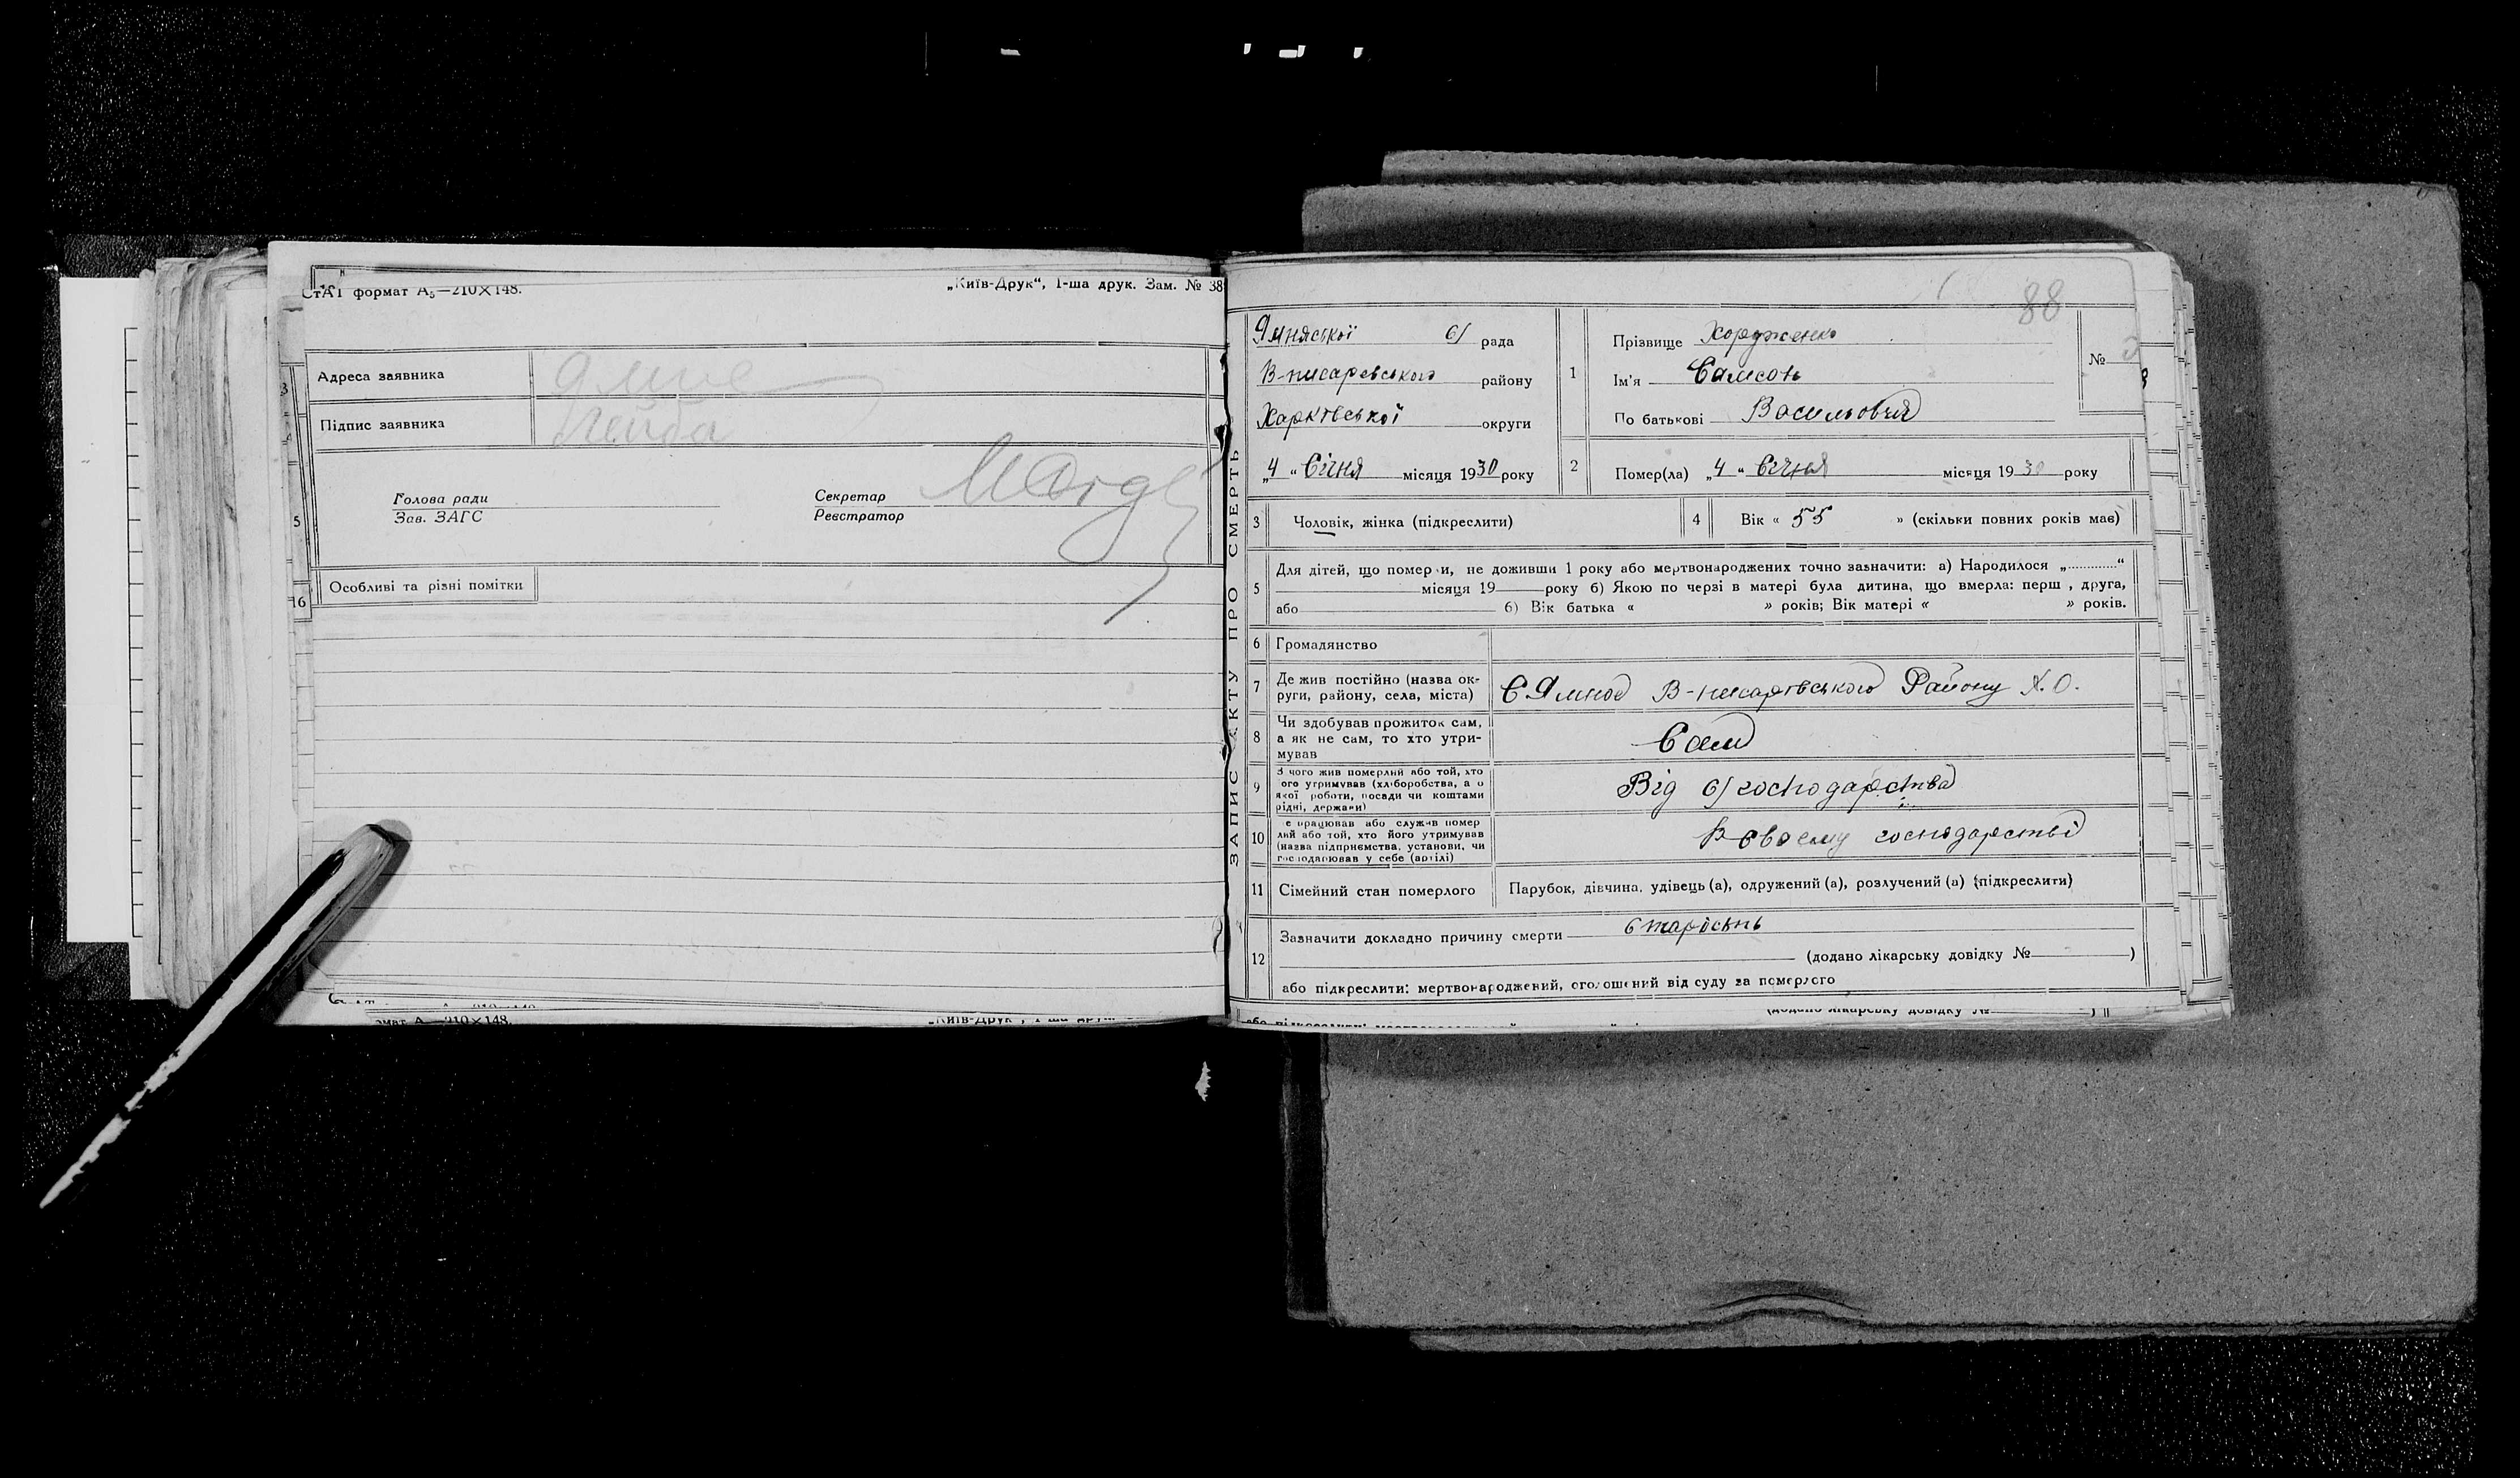 СтАТ формат А₅—210×148.
„Київ-Друк“, 1-ша друк. Зам. № 38
Адреса заявника Ямне
Підпис заявника
Голова ради
Зав. ЗАГС
Секретар
Реєстратор
16 Особливі та різні помітки
88
ЗАПИС АКТУ ПРО СМЕРТЬ
Ямняської с/ рада
В-писаревського району
Харківської округи
„4“ Січня місяця 1930 року
1 Прізвище Хордженко
Ім'я Самсон
По батькові Васильович
№
2 Помер(ла) „4“ Січня місяця 1930 року
3 Чоловік, жінка (підкреслити)
4 Вік « 55 » (скільки повних років має)
5 Для дітей, що померли, не доживши 1 року або мертвонароджених точно зазначити: а) Народилося „............“
місяця 19 року б) Якою по черзі в матері була дитина, що вмерла: перш , друга,
або б) Вік батька « » років; Вік матері « » років.
6 Громадянство
7 Де жив постійно (назва ок-
руги, району, села, міста) С Ямное В-писарівського Району Х.О.
8 Чи здобував прожиток сам,
а як не сам, то хто утри-
мував Сам
9 З чого жив померлий або той, хто
його утримував (хліборобства, а о
якої роботи, посади чи коштами
рідні, держави) Від с/господарства
10 е працював або служив помер
лий або той, хто його утримував
(назва підприємства, установи, чи
господарював у себе (артілі) В своему господарстві
11 Сімейний стан померлого Парубок, дівчина, удівець (а), одружений (а), розлучений (а) (підкреслити)
12 Зазначити докладно причину смерти
(додано лікарську довідку № )
або підкреслити: мертвонароджений, оголошений від суду за померлого
(додано лікарську довідку № )